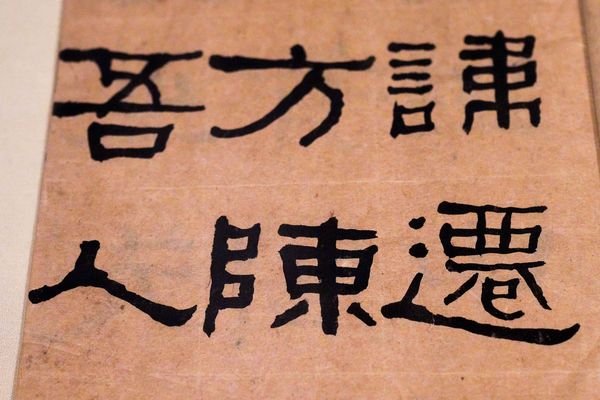 諱遷
方陳
吾人